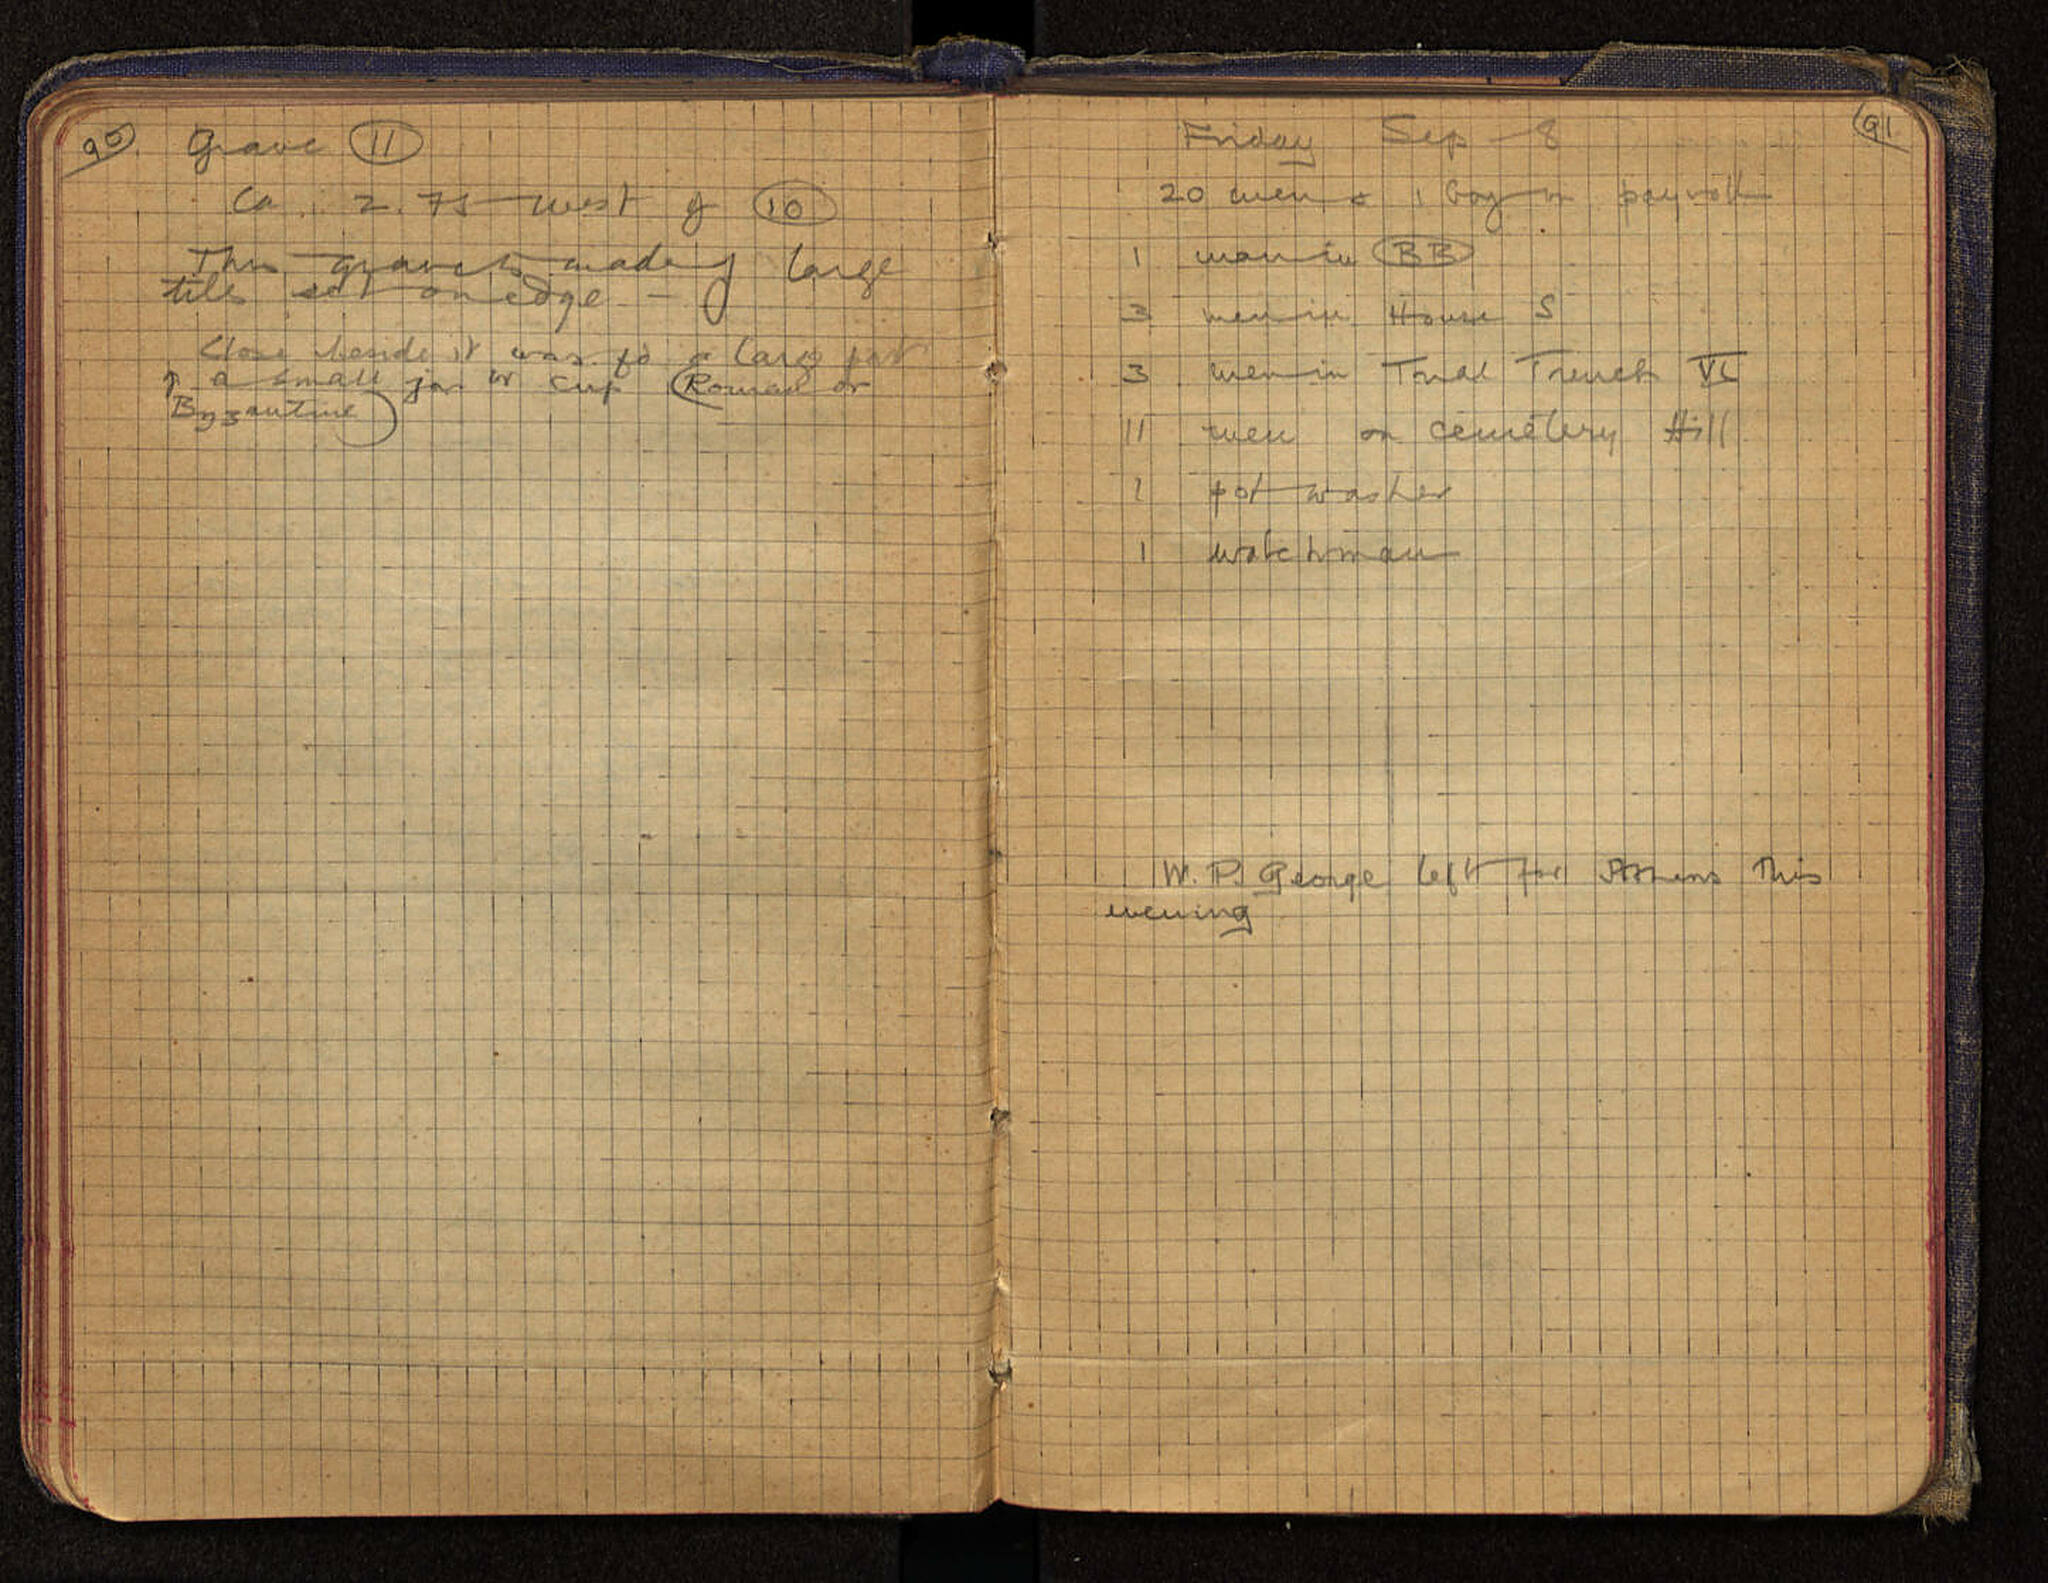 90
Grave 11
Ca. 2.75 west of 10
This grave is made of large
tiles set on edge —
Close beside it was fd a large pot
& a small jar or cup (Roman or
Byzantine)
91
Friday Sep 8
20 men & 1 boy on payroll
1 man in BB
3 men in House S
3 men in Trial Trench VI
11 men on cemetery Hill
1 pot washer
1 watchman
W. P. George left for Athens this
evening